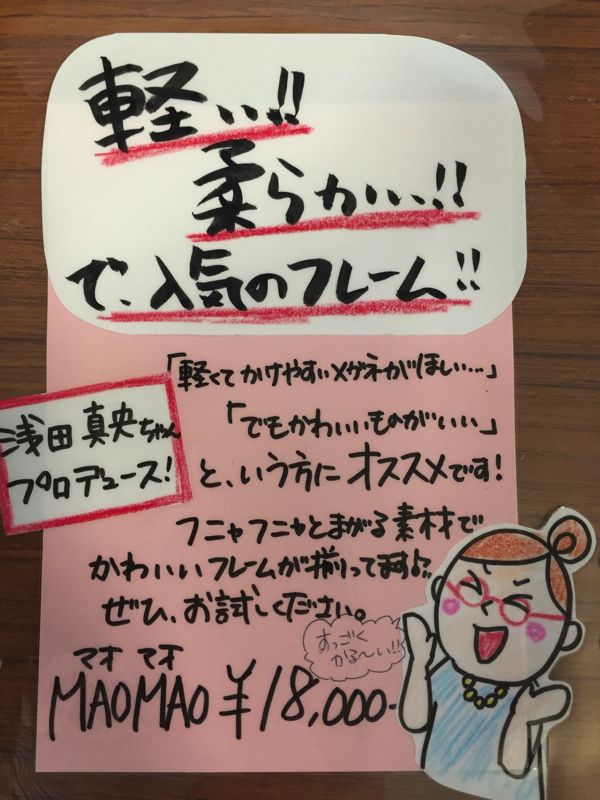 軽い!!
柔らかい、!!
で、人気のフレーム!!
「軽くてかけやすいメガネがほしい…」
「でもかわいいものがいい」
と、いう方にオススメです!
浅田真央ちゃん
プロデュース!
フニャフニャとまがる素材で
かわいいフレームが揃ってます♪
ぜひ、お試しください。
すっごく
かる〜い!!
マオ マオ
MAOMAO ¥18,000-